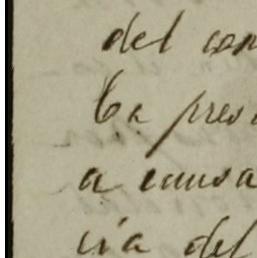 del con
La pres
a causa
cia del